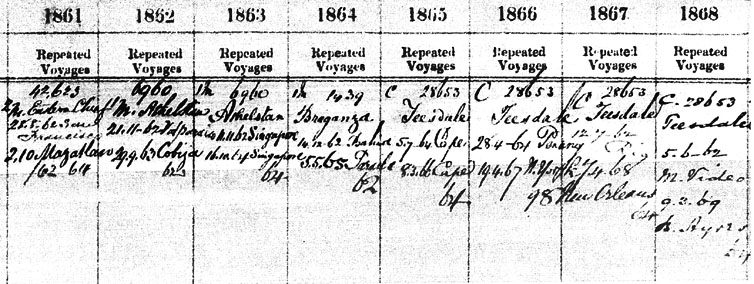 1861 1862 1863 1864 1865 1866 1867 1868
Repeated Voyages Repeated Voyages Repeated Voyages Repeated Voyages Repeated Voyages Repeated Voyages Repeated Voyages Repeated Voyages
42623
Eastern Chief
Francisco
2.10 Mazatlan
62 64
6960
M. Athelstan
21.11.62 Valparaiso
29.9.63 Cobija
62
M 6960
Athelstan
Singapore
Singapore
64
M 1439
Braganza
14.12.62
5.5.65
62
C 28653
Teesdale
5.7.64 Cape
8.3.66 Cape
64
C 28653
Teesdale
28.4.64
19.4.67 N. York
98
C 28653
Teesdale
4.68
New Orleans
64
C. 28653
Teesdale
5.6.62
M. Video
9.2.69
B. Ayres
64